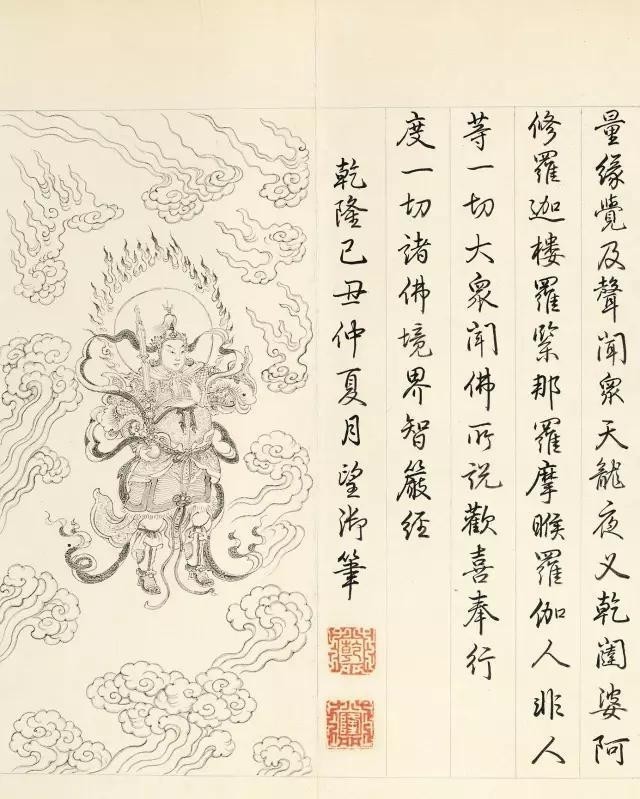 量緣覺及聲聞眾天龍夜叉乾闥婆阿
修羅迦樓羅緊那羅摩睺羅伽人非人
等一切大眾聞佛所說歡喜奉行
度一切諸佛境界智嚴經
乾隆己丑仲夏月望御筆
乾
隆